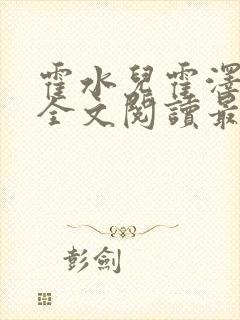 霍水兒霍澤
全文閱讀最
彭劍